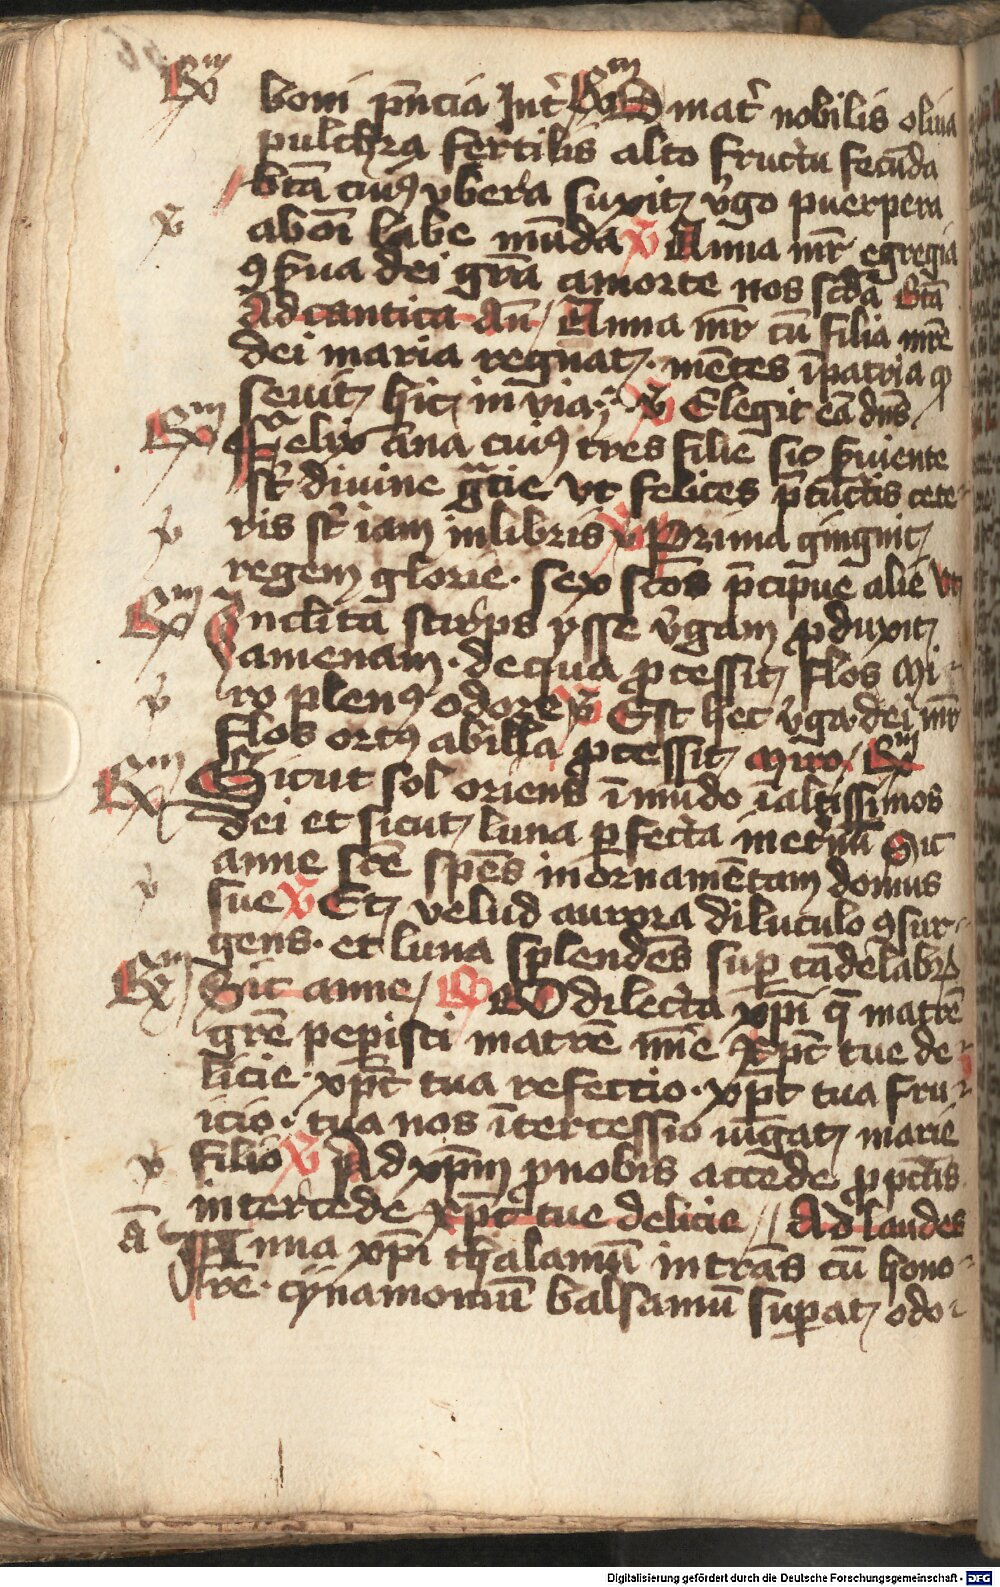 R̄m boni p̄ncia Int᷒ R̄m O mat᷒ nobilis oliua
pulchra fertilis alto fructu fecūda
btā cui9 vbera suxit v᷒go puerpera
v aboī labe mūda v̄ Anna mr̄ egregia
9s̄ua dei grā amorte nos scd̄a Btā
Ad cantica An̄ Anna mr̄ cū filia mr̄e
dei maria regnat · mētes ī patria q̄
seruit hic in via · v̄ Elegit eā dn̄s
R̄m Felix āna cui9 tres filie sic s̄uiente
st̄ diuine gr̄cie vt felices p̄ cūctis cete
v ris st̄ iam in libris v̄ Prima gingnit
regem glorie · sex scōs p̄cipue alie vt
R̄m Inclita stirps ysse v᷒gam ꝓduxit
amenam · de qua ꝓcessit flos mi
v ro plen9 odore v̄ Est hec v᷒ga dei mr̄
flos ort9 ab illa ꝓcessit miro R̄m
R̄m Sicut sol oriens ī mūdo ī altissimos
dei et sicut luna ꝑfecta in et᷒nū Sic
anne scē spēs in ornamētam domus
v sue v̄ Et velud aurora diluculo 9sur
gens · et luna splendēs suꝑ cādelabrū
R̄m Sic anne R̄ O dilecta xp̄i q̄ matrē
gr̄e pepisti matrē mīe xp̄c tue de
licie · xp̄c tua refectio · xp̄c tua fru
icio · tua nos ītercessio iūgat marie
v filio v̄ Ad xp̄m ꝓ nobis accede ꝓ pctīs
intercede xp̄c tue delicie Ad laudes
ā Anna xp̄i thalamū intrās cū hono
re · cynamomū balsamū suꝑat odo
Digitalisierung gefördert durch die Deutsche Forschungsgemeinschaft - DFG